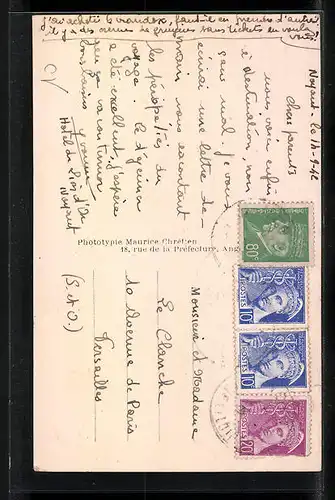 j'ai acheté le viandox, faut-il en prendre d'autre
il y a des vermicelles sans tickets en voulez
vous?
Noyant - le 14-9-42
Chers parents
nous voici enfin
à destination, non
sans mal. Je vous
écrirai une lettre de-
main, vous racontant
les péripéties du
voyage. Le déjeuner
a été excellent, j'espère
que ça va continuer
bons baisers Yvonne
Hotel du Lion d'Or
Noyant
Phototypie Maurice Chrétien
18, rue de la Préfecture, Ang
Monsieur et Madame
Le Clanche
10 Avenue de Paris
Versailles
(S. et O.)
80
POSTES
10
POSTES
10
POSTES
20